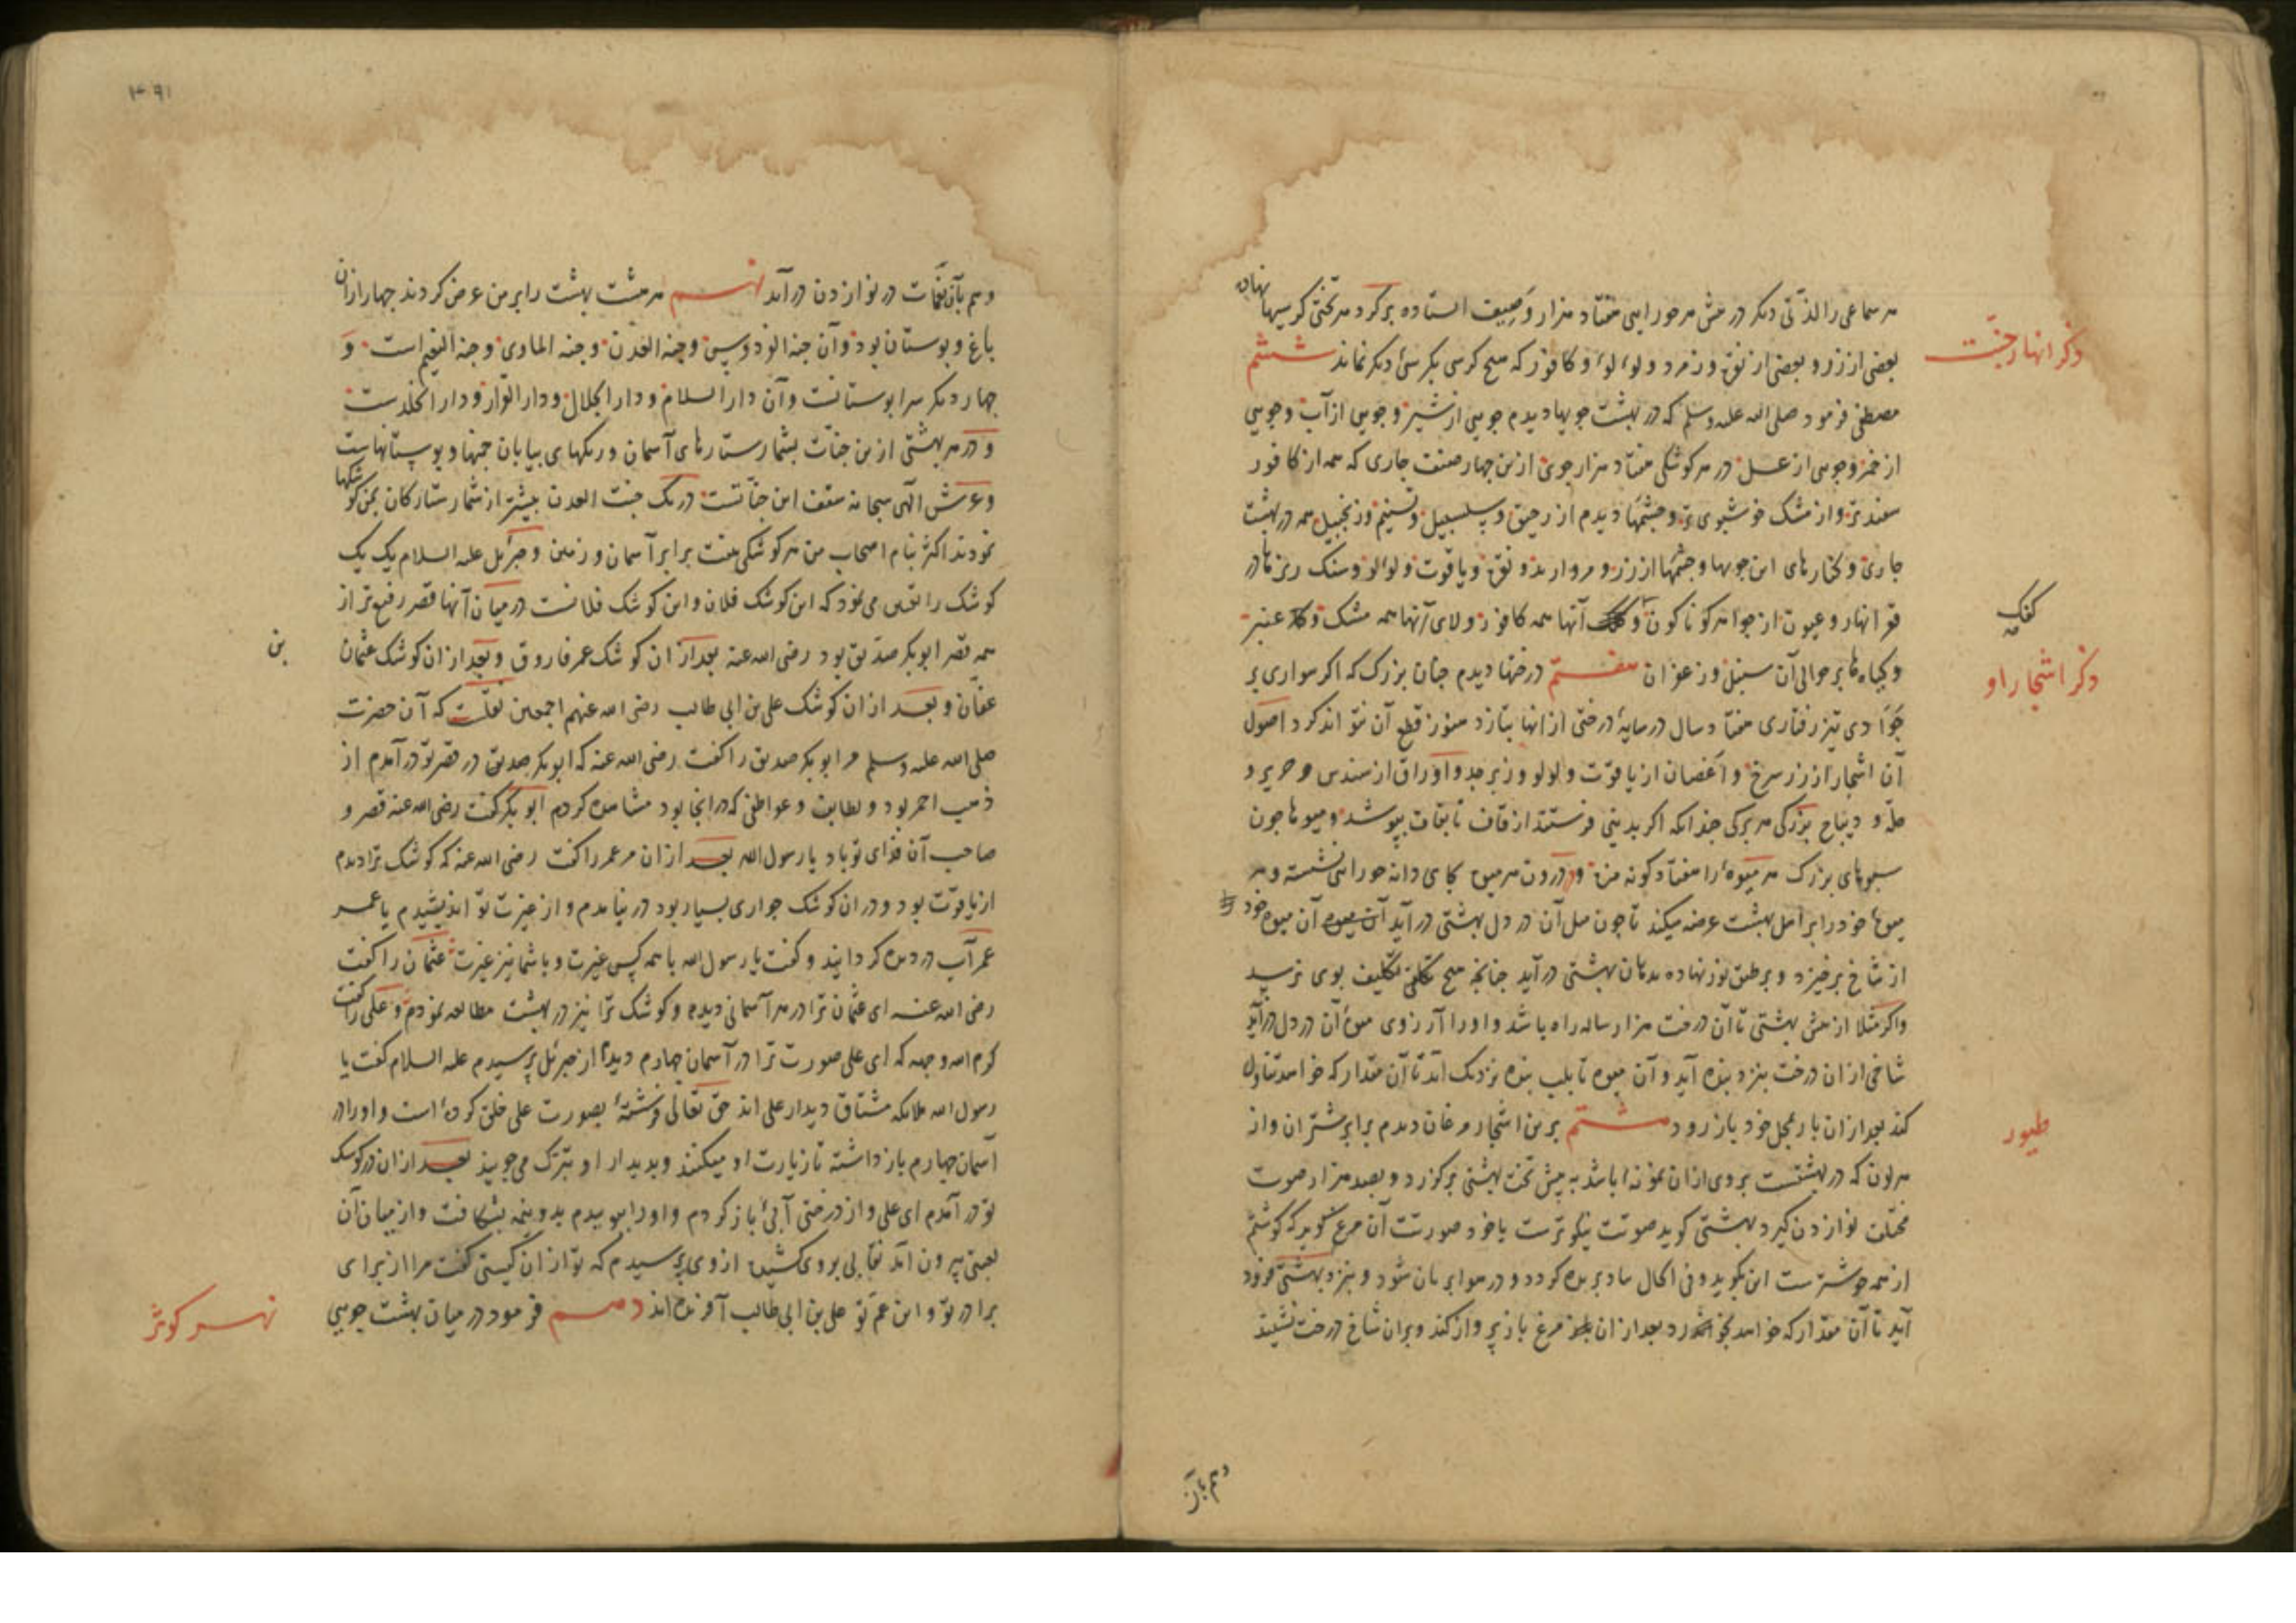 هر سماعی را لذّتی دیگر در پیش هر حورایی هفتاد هزار وصیفت استاده برگرد هر تختی کرسیها نهاده
بعضی از زر و بعضی از نقره و زمرد و لولو و کافور که هیچ کرسی بکرسیٔ دیگر نماند ششم
ذکر انهار جنّت
مصطفی فرمود صلی الله علیه وسلم که در بهشت جویها دیدم جویی از شیر و جویی از آب و جویی
از خمر و جویی از عسل در هر کوشکی هفتاد هزار جوی ازین چهار صنف جاری که همه از کافور
سفیدتر و از مشک خوشبوی تر و چشمها دیدم از رحیق و سلسبیل و تسنیم و زنجبیل همه در بهشت
جاری و کنارهای این جویها و چشمها از زر و مروارید و نقره و یاقوت و لولو و سنگ ریزها در
قعر انهار و عیون از جواهر کوناکون و آنها همه کافور و لای آنها همه مشک و عنبر
کفک
و گیاه ها بر حوالی آن سنبل و زعفران هفتم درختها دیدم چنان بزرگ که اگر سواری بر
ذکر اشجار او
جَوادی تیز رفتاری هفتاد سال در سایهٔ درختی از انها بتازد هنوز قطع آن نتواند کرد اصول
آن اشجار از زر سرخ و اغصان از یاقوت و لولو و زبرجد و اوراق از سندس و حریر و
حلّه و دیباج بزرگی هر برگی چندانکه اگر بدنیی فرستند از قاف تا بقاف بپوشد و میوها چون
سبوهای بزرگ هر میوهٔ را هفتاد گونه مزه و در درون هر میوه بجای دانه حورایی نشسته و هر
میوها خود را بر اهل بهشت عرضه میکند تا چون میل آن در دل بهشتی در آید آن میوه خود
از شاخ برخیزد و بر طبق نور نهاده بدهان بهشتی در آید چنانچه هیچ تکلیف بوی نرسید
و اگر مثلا از پیش بهشتی تا آن درخت هزار ساله راه باشد و او را آرزوی میوهٔ آن در دل در آید
شاخی از ان درخت بنزد بنده آید و آن میوه تا بلب بنده نزدیک آید تا آن مقدار که خواهد تناول
کند بعد ازان باز بمحل خود باز رود هشتم برین اشجار مرغان دیدم برابر شتران و از
طیور
هر لون که در بهشتست بر وی ازان نمونه‌ا باشد به پیش تخت بهشتی برگزرد و بصد هزار صوت
مختلف نوازدن گیرد بهشتی گوید صوتت نیکوترست یا خود صورتت آن مرغ گوید که گوشتم
از همه خوشترست این بگوید و فی الحال ماد بریده گردد و در هوا بریان شود و بنزد بهشتی فرود
آید تا آن مقدار که خواهد بخورد بعد ازان مرغ باز پرواز کند و بران شاخ درخت نشیند
وهم بآن
وهم بآن نغمات در نوازدن در آید نهم هر هشت بهشت را بر من عرض کردند چهار ازان
باغ و بوستان بود و آن جنة الفردوس و جنة العدن و جنة الماوی و جنة النعیم است و
چهار دیگر سرابوستانست و آن دار السلام و دار الجلال و دار القرار و دار الخلدست
و در هر بهشتی ازین جنات بشمار ستارهای آسمان و ریگهای بیابان چمنها و بوستانهاست
و عرش الهی سبحانه سقف این جنّاتست در یک جنت العدن بیشتر از شمار ستارگان بمن کوشکها
نمودند اکثر بنام اصحاب من هر کوشکی هفت برابر آسمان و زمین و جبرئیل علیه السلام یک یک
کوشک را تعین می نمود که این کوشک فلان و این کوشک فلانست در میان آنها قصر رفیع تر از
همه قصر ابوبکر صدیق بود رضی الله عنه بعد ازان کوشک عمر فاروق و بعد ازان کوشک عثمان
بن
عفّان و بعد ازان کوشک علی بن ابی طالب رضی الله عنهم اجمعین نقلست که آن حضرت
صلی الله علیه وسلم مر ابوبکر صدیق را گفت رضی الله عنه که ابوبکر صدیق در قصر تو در آمدم از
ذهب احمر بود و لطایف و عواطفی که در انجا بود مشاهده کردم ابوبکر گفت رضی الله عنه قصر و
صاحب آن فدای تو باد یا رسول الله بعد ازان مر عمر را گفت رضی الله عنه که کوشک ترا دیدم
از یاقوت بود و دران کوشک جواری بسیار بود در نیامدم و از غیرت تو اندیشیدم یا عمر
عمر آب در دیده گردانید و گفت یا رسول الله با همه کس غیرت و با شما نیز غیرت عثمان را گفت
رضی الله عنه ای عثمان ترا در هر آسمانی دیدم و کوشک ترا نیز در بهشت مطالعه نمودم و علی را گفت
کرم الله وجهه که ای علی صورت ترا در آسمان چهارم دیدم از جبرئیل پرسیدم علیه السلام گفت یا
رسول الله ملایکه مشتاق دیدار علی اند حق تعالی فرشتهٔ بصورت علی خلق کرده است و او را در
آسمان چهارم باز داشته تا زیارت او میکنند و بدیدار او تبرک می جویند بعد ازان در کوشک
تو در آمدم ای علی و از درختی آبیٔ باز کردم و او را ببوییدم بدو نیمه بشکافت و از میان آن
لعبتی بیرون آمد نقابی بروی کشیده ازوی پرسیدم که تو از ان کیستی گفت مرا از برای
برادر تو و ابن عم تو علی بن ابی طالب آفریده اند دهم فرمود در میان بهشت جویی
نهر کوثر